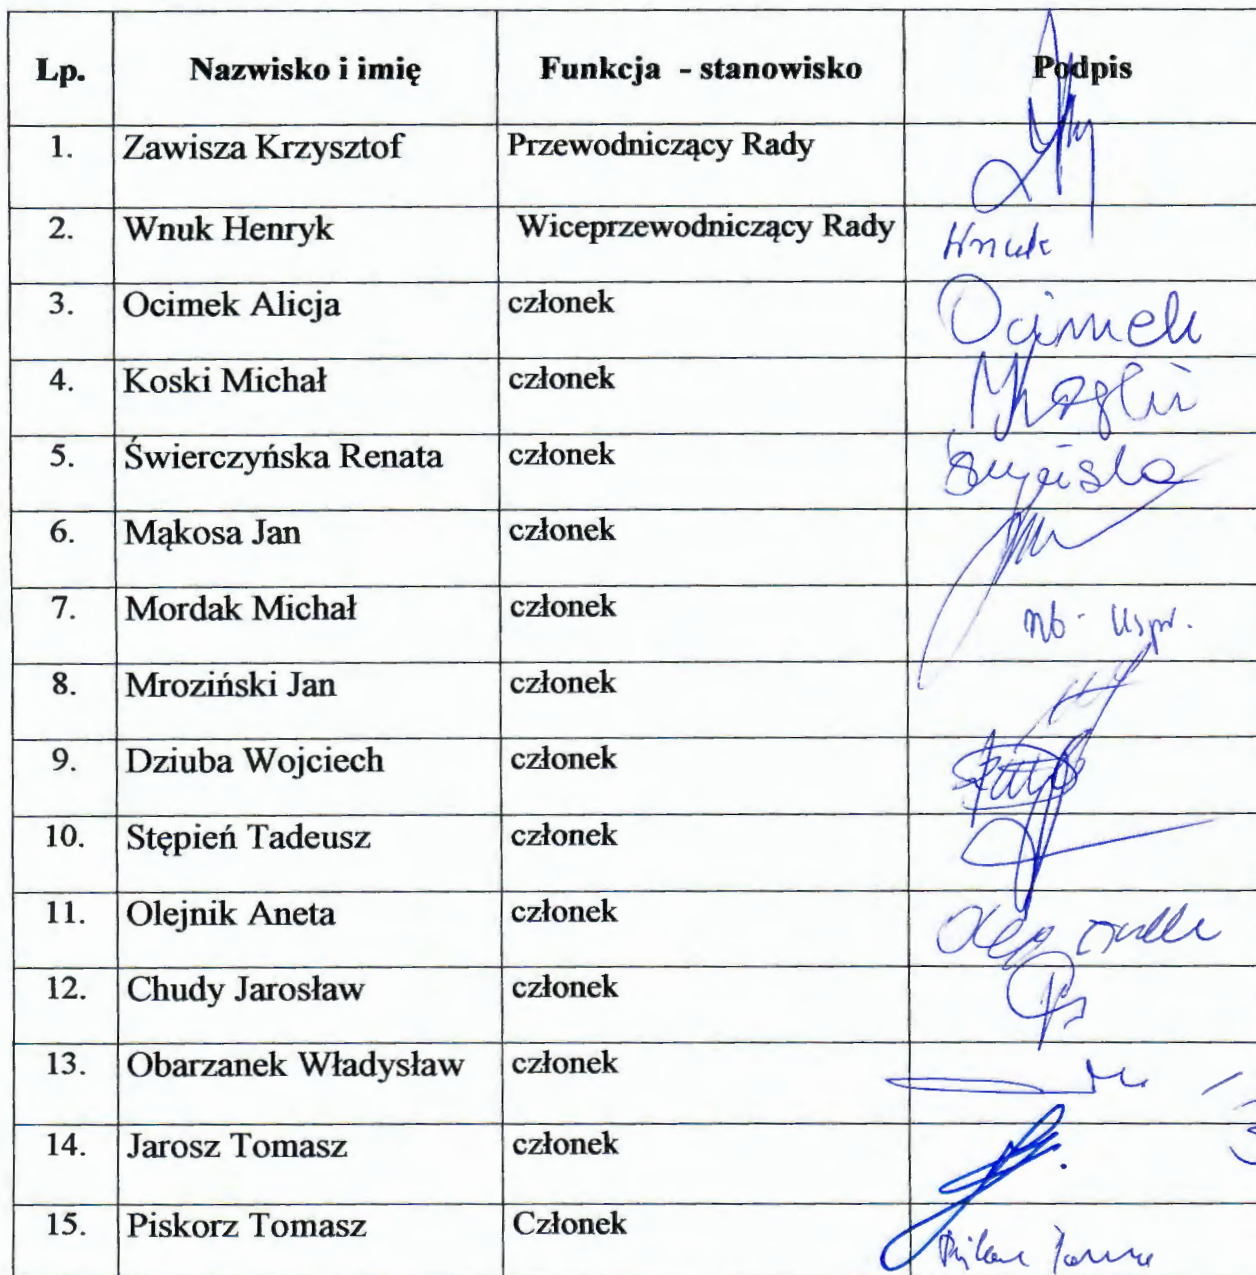 Lp. Nazwisko i imię Funkcja - stanowisko Podpis
1. Zawisza Krzysztof Przewodniczący Rady
2. Wnuk Henryk Wiceprzewodniczący Rady Wnuk
3. Ocimek Alicja członek Ocimek
4. Koski Michał członek
5. Świerczyńska Renata członek
6. Mąkosa Jan członek
7. Mordak Michał członek nb - uspr.
8. Mroziński Jan członek
9. Dziuba Wojciech członek
10. Stępień Tadeusz członek
11. Olejnik Aneta członek
12. Chudy Jarosław członek
13. Obarzanek Władysław członek
14. Jarosz Tomasz członek
15. Piskorz Tomasz Członek